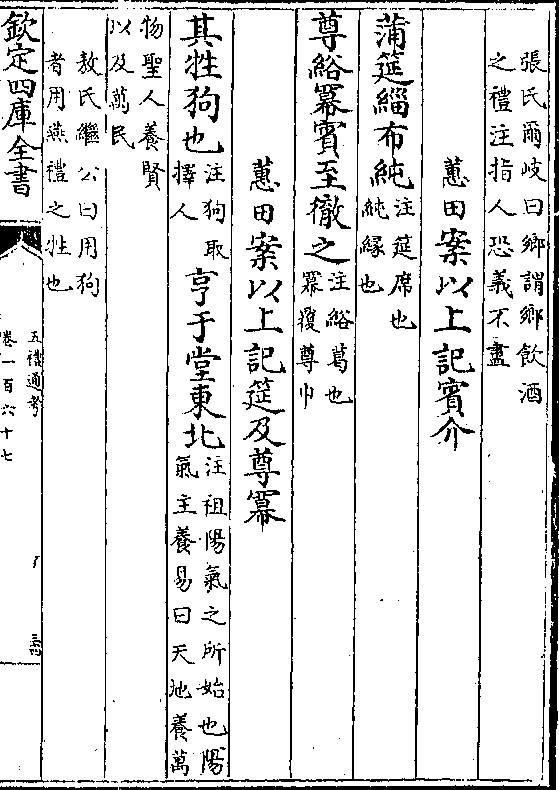 張氏爾岐曰鄉謂鄉飲酒
之禮注指人恐義不盡
蕙田案以上記賓介
蒲筵緇布純注筵席也
純緣也
尊綌冪賓至徹之注綌葛也
冪覆尊巾
蕙田案以上記筵及尊冪
其牲狗也注狗取
擇人
亨于堂東北注祖陽氣之所始也陽
氣主養易曰天地養萬
物聖人養賢
以及萬民
敖氏繼公曰用狗
者用燕禮之牲也
欽定四庫全書
五禮通考
卷一百六十七